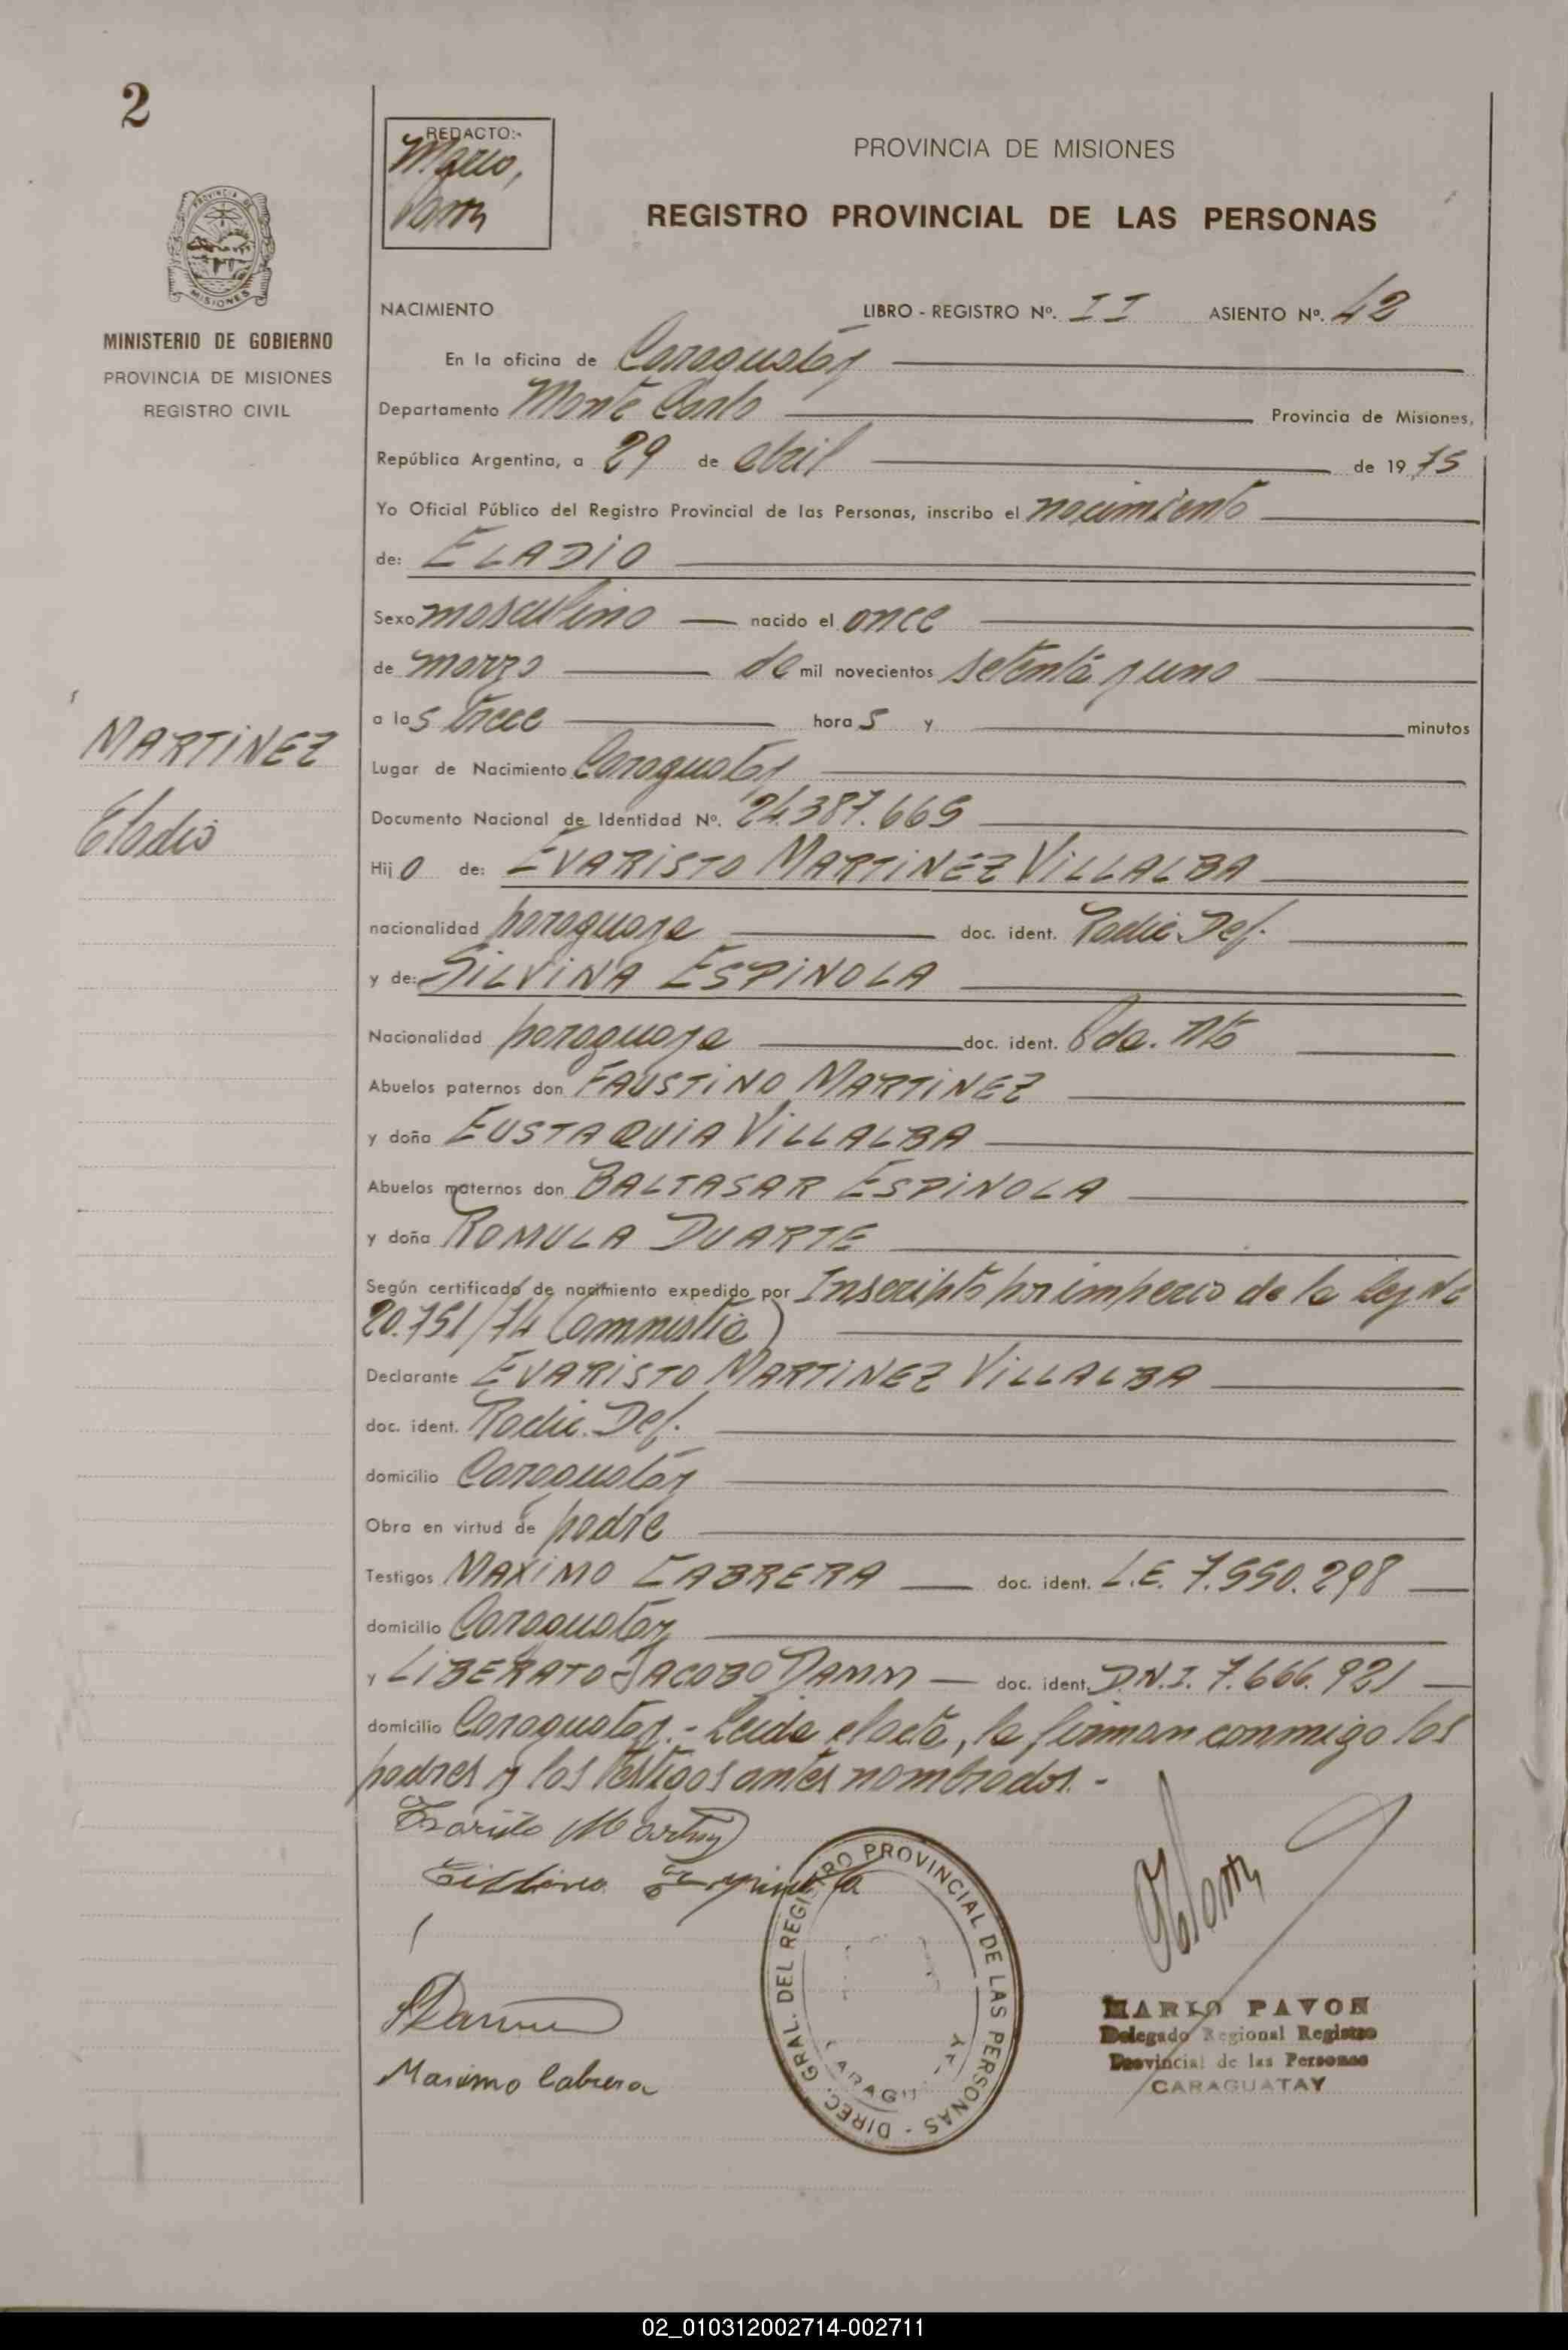 2
REDACTO:-
PROVINCIA DE MISIONES
REGISTRO PROVINCIAL DE LAS PERSONAS
PROVINCIA DE
MISIONES
MINISTERIO DE GOBIERNO
PROVINCIA DE MISIONES
REGISTRO CIVIL
MARTINEZ
Eladio
NACIMIENTO LIBRO - REGISTRO Nº. II ASIENTO Nº. 42
En la oficina de Caraguatay
Departamento Monte Carlo Provincia de Misiones,
República Argentina, a 29 de abril de 1975
Yo Oficial Público del Registro Provincial de las Personas, inscribo el nacimiento
de: ELADIO
Sexo masculino nacido el once
de marzo de mil novecientos setenta y uno
a las trece horas y minutos
Lugar de Nacimiento Caraguatay
Documento Nacional de Identidad Nº. 24.387.665
Hijo de: EVARISTO MARTINEZ VILLALBA
nacionalidad paraguaya doc. ident. Radic. Def.
y de: SILVINA ESPINOLA
Nacionalidad paraguaya doc. ident.
Abuelos paternos don FAUSTINO MARTINEZ
y doña EUSTAQUIA VILLALBA
Abuelos maternos don BALTASAR ESPINOLA
y doña ROMULA DUARTE
Según certificado de nacimiento expedido por Inscripto por imperio de la Ley Nº
20.751/74 (amnistia)
Declarante EVARISTO MARTINEZ VILLALBA
doc. ident. Radic. Def.
domicilio Caraguatay
Obra en virtud de padre
Testigos MAXIMO CABRERA doc. ident. L.E. 7.550.298
domicilio Caraguatay
y LIBERATO JACOBO DAMM doc. ident. D.N.I. 7.666.921
domicilio Caraguatay.- Leida el acta, la firman conmigo los
padres y los testigos antes nombrados.-
Maximo Cabrera
DIREC. GRAL. DEL REGISTRO PROVINCIAL DE LAS PERSONAS -
MARIO PAVON
Delegado Regional Registro
Provincial de las Personas
CARAGUATAY
02_010312002714-002711